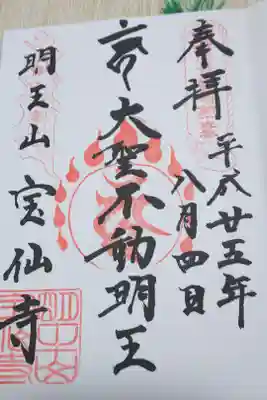 奉拝
平成廿五年
八月四日
大聖不動明王
明王山
宝仙寺